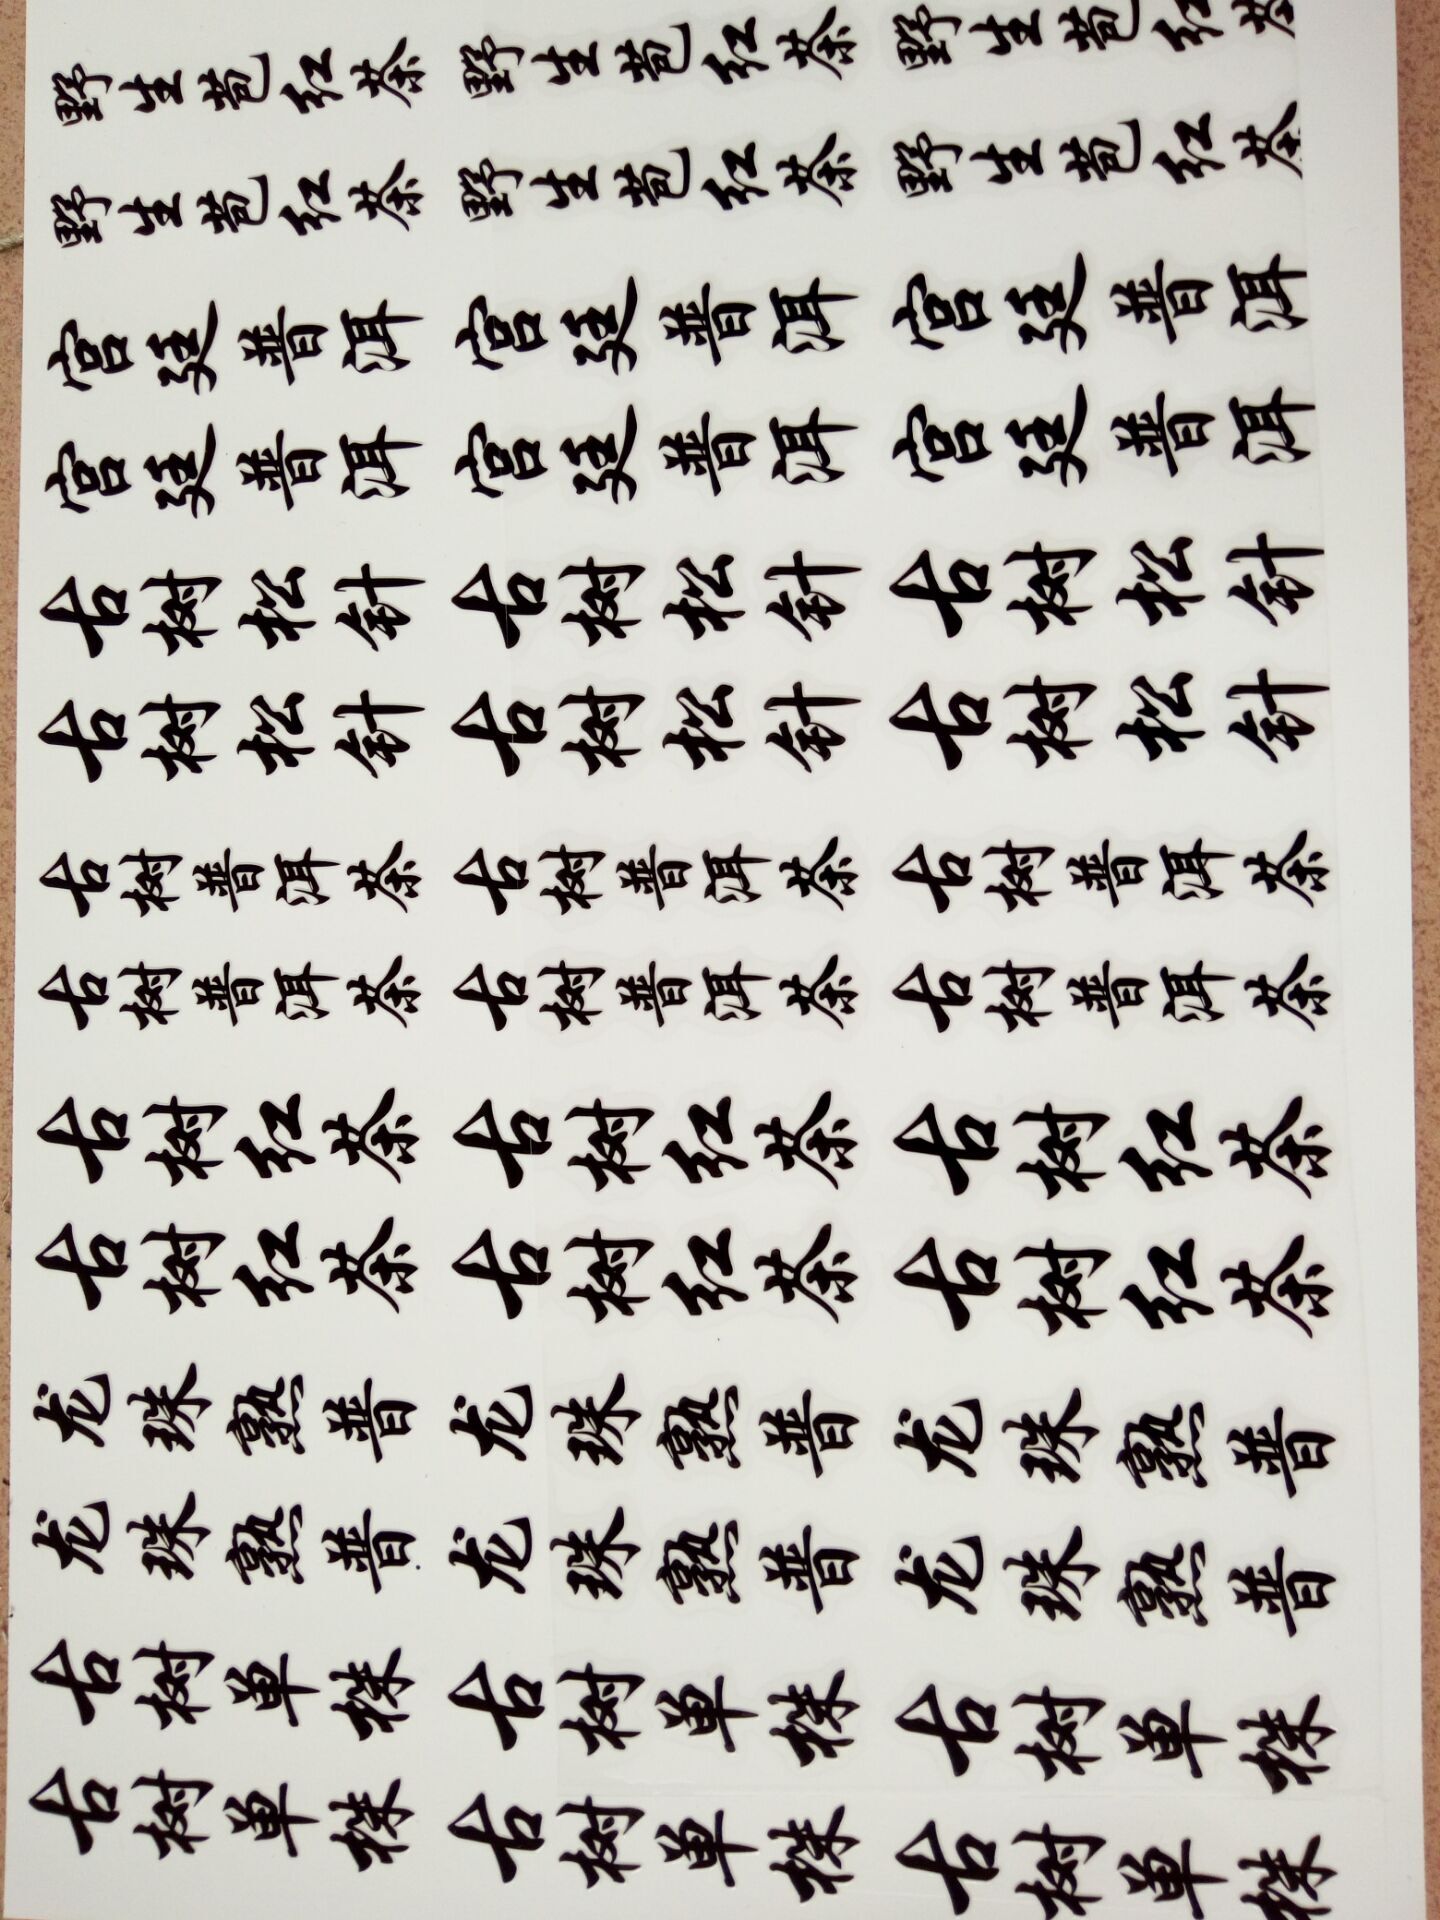 野生苞红茶 野生苞红茶 野生苞红茶
野生苞红茶 野生苞红茶 野生苞红茶
宫廷普洱 宫廷普洱 宫廷普洱
宫廷普洱 宫廷普洱 宫廷普洱
古树松针 古树松针 古树松针
古树松针 古树松针 古树松针
古树普洱茶 古树普洱茶 古树普洱茶
古树普洱茶 古树普洱茶 古树普洱茶
古树红茶 古树红茶 古树红茶
古树红茶 古树红茶 古树红茶
龙珠熟普 龙珠熟普 龙珠熟普
龙珠熟普 龙珠熟普 龙珠熟普
古树单株 古树单株 古树单株
古树单株 古树单株 古树单株